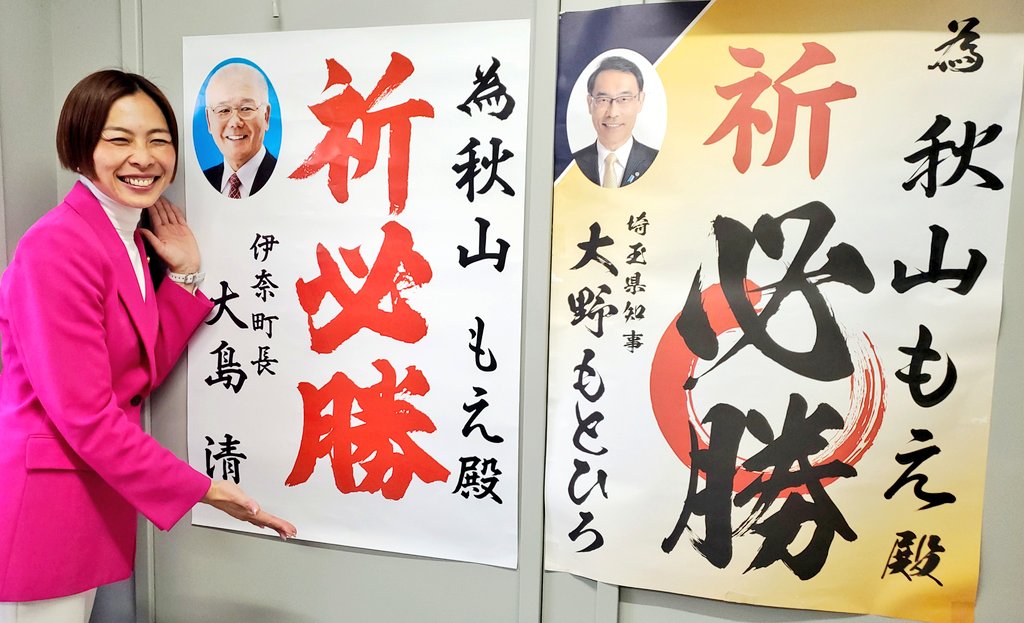 為秋山もえ殿
祈必勝
伊奈町長
大島 清
為秋山もえ殿
祈必勝
埼玉県知事
大野もとひろ